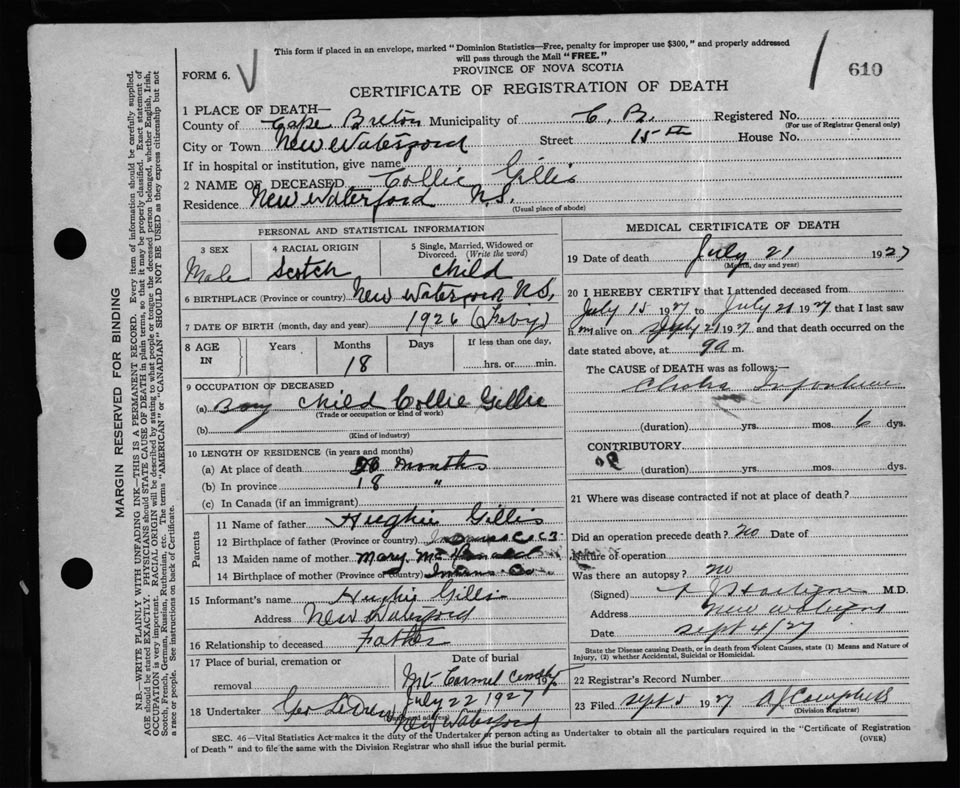 This form if placed in an envelope, marked "Dominion Statistics—Free, penalty for improper use $300," and properly addressed
will pass through the Mail "FREE."
FORM 6.
PROVINCE OF NOVA SCOTIA
610
CERTIFICATE OF REGISTRATION OF DEATH
1 PLACE OF DEATH—
County of Cape Breton Municipality of C. B. Registered No.
(For use of Registrar General only)
City or Town New Waterford Street 15th House No.
If in hospital or institution, give name
2 NAME OF DECEASED Collie Gillis
Residence New Waterford N.S.
(Usual place of abode)
PERSONAL AND STATISTICAL INFORMATION
3 SEX Male
4 RACIAL ORIGIN Scotch
5 Single, Married, Widowed or Divorced. (Write the word) child
6 BIRTHPLACE (Province or country) New Waterford N.S.
7 DATE OF BIRTH (month, day and year) 1926 (Feby)
8 AGE IN Years Months 18 Days If less than one day, hrs. or min.
9 OCCUPATION OF DECEASED
(a) Boy child Collie Gillis
(Trade or occupation or kind of work)
(b)
(Kind of industry)
10 LENGTH OF RESIDENCE (in years and months)
(a) At place of death months
(b) In province 18 "
(c) In Canada (if an immigrant)
Parents
11 Name of father Hughie Gillis
12 Birthplace of father (Province or country)
13 Maiden name of mother Mary
14 Birthplace of mother (Province or country) Co
15 Informant's name Hughie Gillis
Address New Waterford
16 Relationship to deceased Father
17 Place of burial, cremation or removal Mt Carmel
Date of burial July 22 1927
18 Undertaker Geo
(Name and address)
New Waterford
MEDICAL CERTIFICATE OF DEATH
19 Date of death July 21 1927
(Month, day and year)
20 I HEREBY CERTIFY that I attended deceased from
July 15 1927 to July 21 1927 that I last saw
h im alive on July 21 1927 and that death occurred on the
date stated above, at 9a m.
The CAUSE OF DEATH was as follows:—
Cholera Infantum
(duration) yrs. mos. 6 dys.
CONTRIBUTORY
(duration) yrs. mos. dys.
21 Where was disease contracted if not at place of death?
Did an operation precede death? no Date of
Nature of operation
Was there an autopsy? no
(Signed) M.D.
Address New Waterford
Date Sept 4/27
State the Disease causing Death, or in death from Violent Causes, state (1) Means and Nature of
Injury, (2) whether Accidental, Suicidal or Homicidal.
22 Registrar's Record Number
23 Filed Sept 5 1927 A J Campbell
(Division Registrar)
SEC. 46—Vital Statistics Act makes it the duty of the Undertaker or person acting as Undertaker to obtain all the particulars required in the "Certificate of Registration
of Death" and to file the same with the Division Registrar who shall issue the burial permit.
(OVER)
MARGIN RESERVED FOR BINDING
N.B.—WRITE PLAINLY WITH UNFADING INK—THIS IS A PERMANENT RECORD. Every item of information should be carefully supplied.
AGE should be stated EXACTLY. PHYSICIANS should STATE CAUSE OF DEATH in plain terms, so that it may be properly classified. Exact statement of
OCCUPATION is very important. RACIAL ORIGIN will be described by stating to what people or tongue the deceased person belonged, whether English, Irish,
Scotch, French, German, Russian, Ruthenian, etc. The terms "AMERICAN" or "CANADIAN" SHOULD NOT BE USED as they express citizenship but not
a race or people. See instructions on back of Certificate.